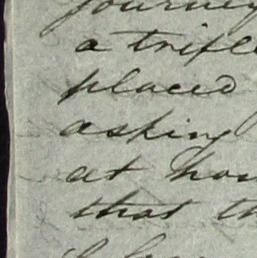 journey
a trifle
placed
asking
at hom
that th